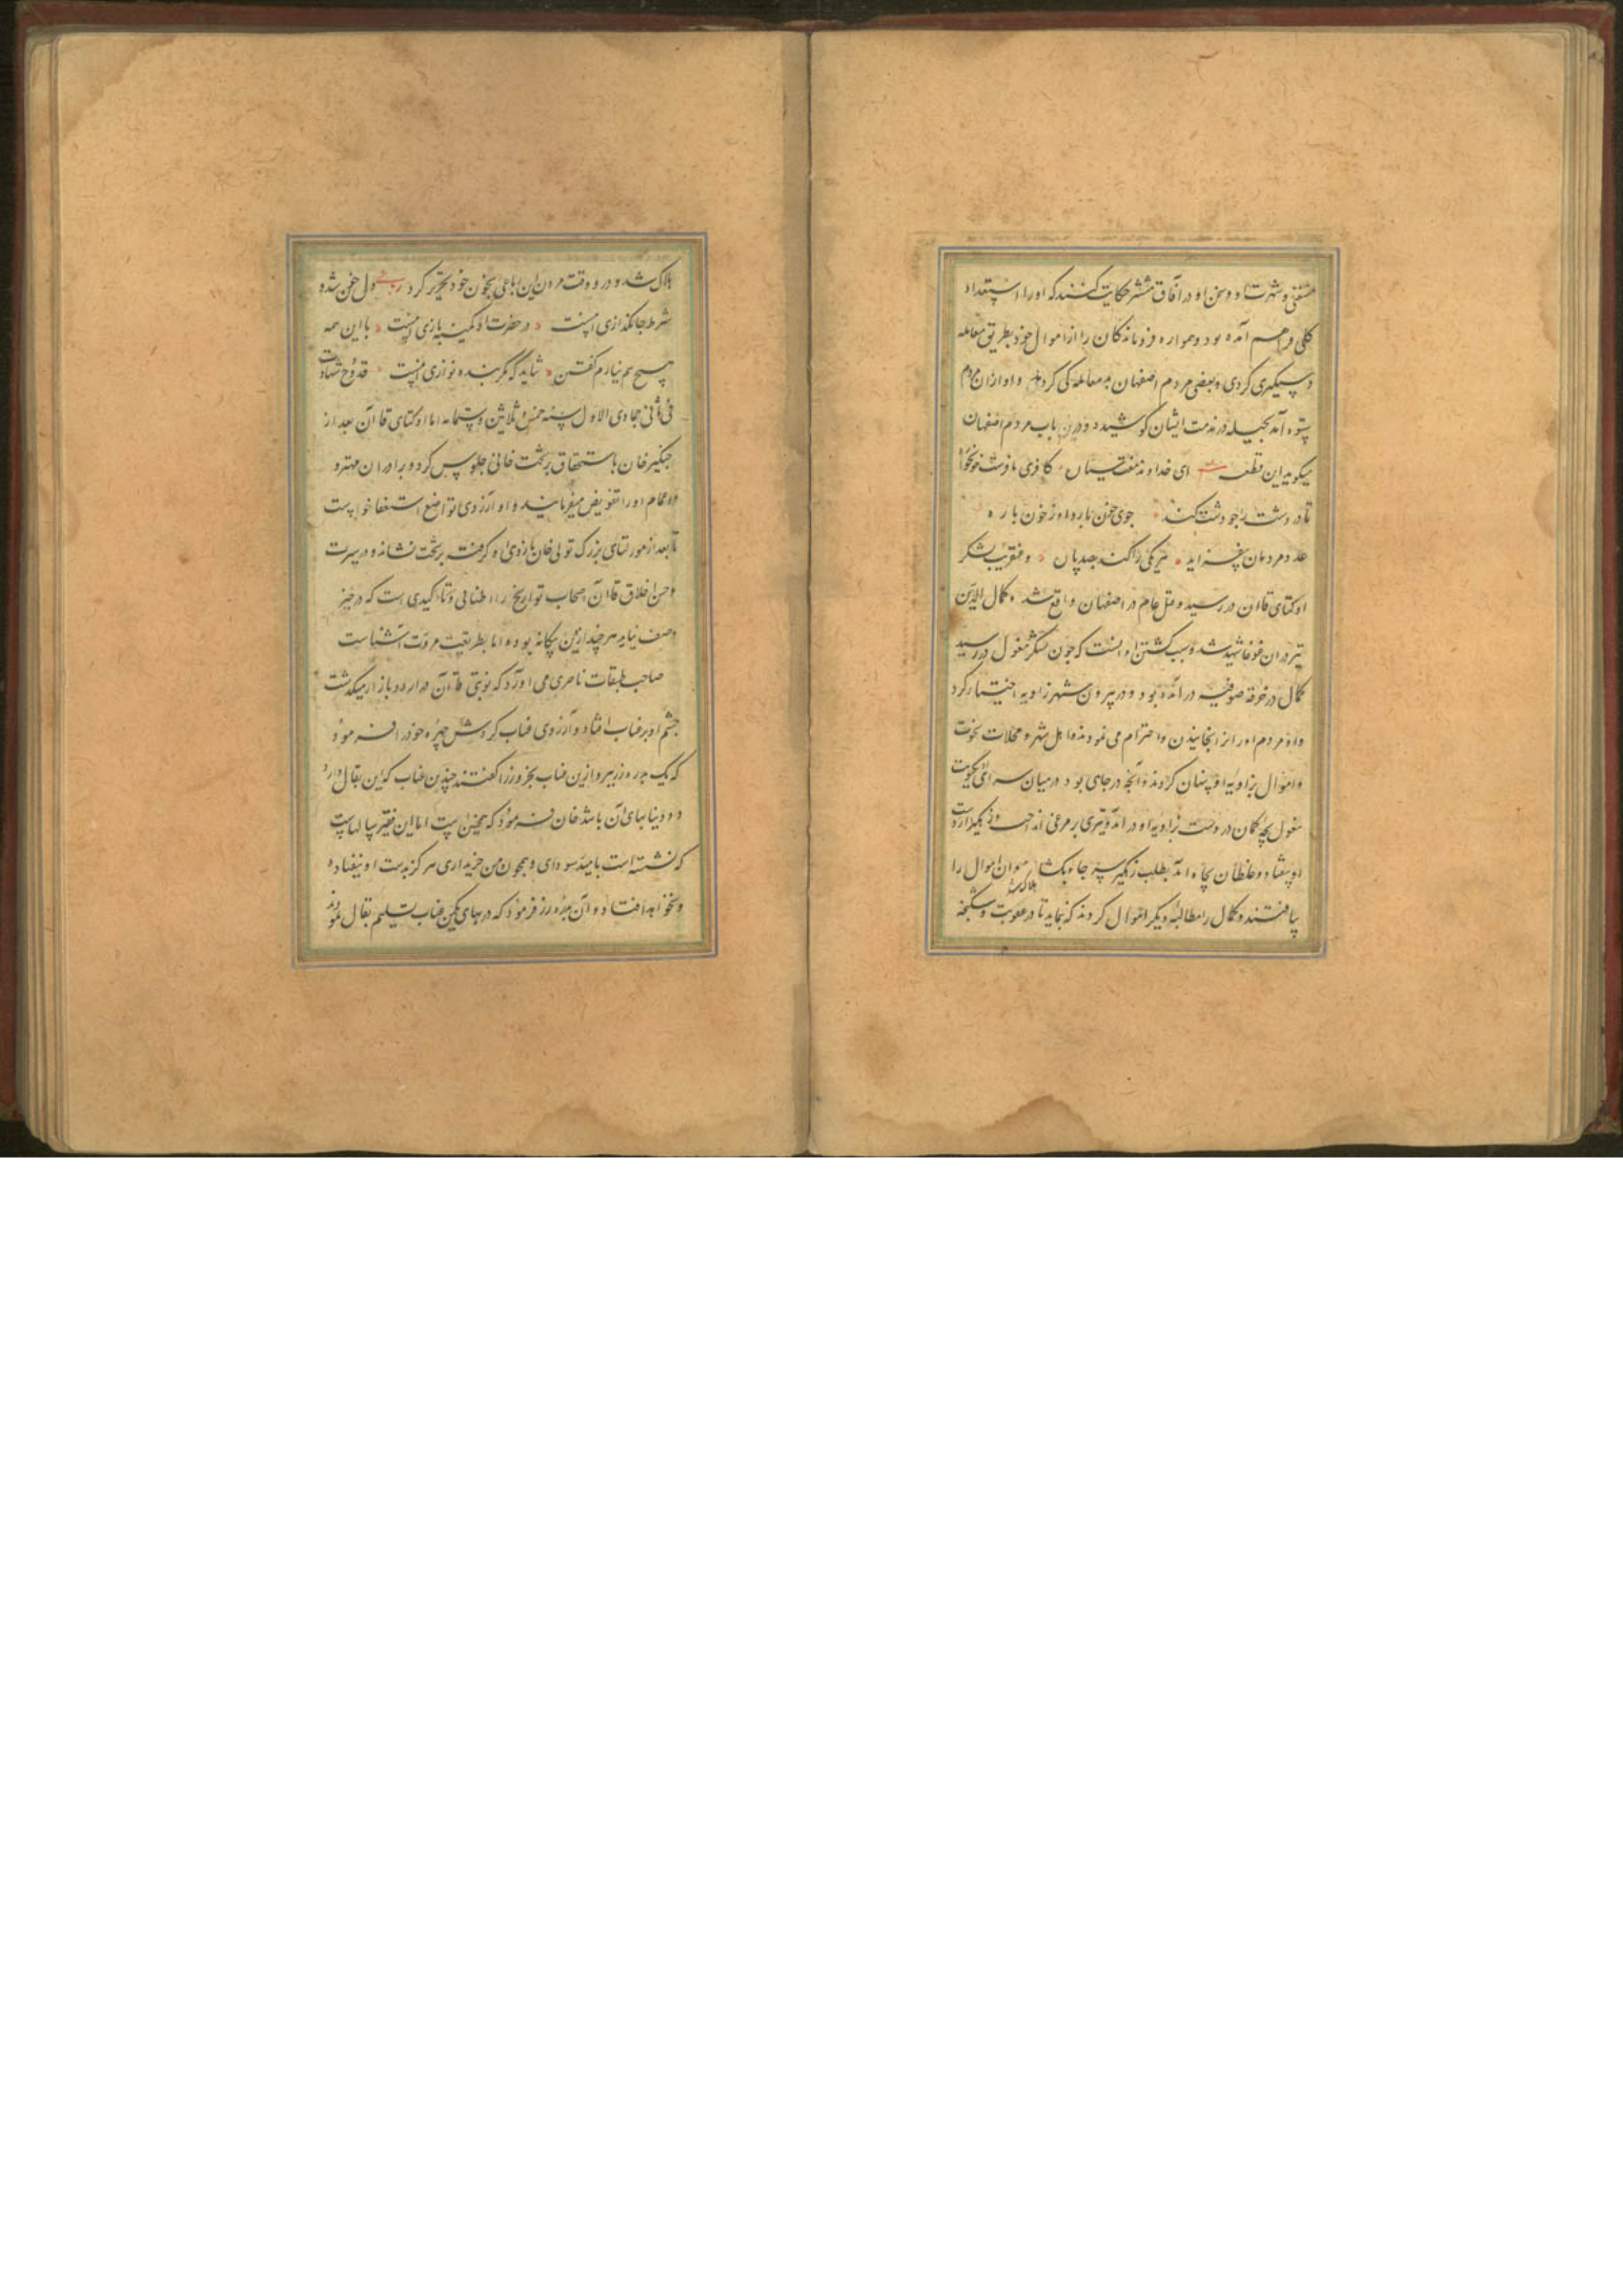 مستغنی و شهرت او و سخن او در آفاق منتشر حکایت کنند که او را استعداد
کلی فراهم آمده بود و همواره فروماندکان را از اموال خود بطریق معامله
دستکیری کردی و بعضی مردم اصفهان بد معاملکی کردند و او ازان مردم
بستوه آمد در مذمت ایشان کوشید و درین باب مردم اصفهان
میکوید این قطعه ای خداوند هفت سیاره کافری را فرست خونخواره
تا در دشت را چو دشت کند جوی خون آرد او ز خون باره
عدد مردمان بیفزاید هر یکی را کند بصد پاره و عنقریب لشکر
اوکتای قاآن در رسید و قتل عام در اصفهان واقع شد و کمال الدین
نیز در ان غوغا شهید شد و سبب کشتن او آنست که چون لشکر مغول در رسید
کمال در خرقه صوفیه در آمده بود و در بیرون شهر زاویه اختیار کرد
و او مردم او را نرنجانیدن و احترام می نمودند و اهل شهر و محلات رخوت
و اموال بزاویه او پنهان کردند و آنجه در جای بود در میان سرای یکنوبت
مغول بچه کمان در دست بزاویه او در آمد و تیری بر مرغی انداخت زهکیر از دست
او بیفتاد و غلطان بچاه آمد بطلب زهکیر سر چاه بکشادند و ان اموال را
بیافتند و کمال را مطالبه دیکر اموال کردند که نماید تا در عقوبت و شکنجه
هلاک شد
هلاک شد و در وقت مردن این رباعی بخون خود تحریر کرد رباعی دل خون شد و
شرط جانکدازی اینست در حضرت او کمینه بازی اینست با این همه
هیچ هم نیارم کفتن شاید که مکر بنده نوازی اینست قد وقع شهادت
فی ثانی جمادی الاول سنه خمس و ثلاثین و ستمایه اما اوکتای قاآن بعد از
جنکیز خان باستحقاق بر تخت خانی جلوس کرد و برادران مهتر و
و اعمام او را تفویض میفرمایند و او از روی تواضع استعفا خواست
تا بعد از مورلتای بزرک تولی خان بازوی او کرفت بر تخت نشاند و در سیرت
و حسن اخلاق قاآن اصحاب تواریخ را اطنابی و تاکیدی است که در حیز
وصف نیاید هر چند ازین بیکانه بوده اما بطریقت مروت آشناست
صاحب طبقات ناصری می آورد که نوبتی قاآن در بازار میکذشت
جشم او بر عناب افتاد و آرزوی عناب کردش چهره خود را فرمود
که یک بدره زر ببر و ازین عناب بخر وزرا کفتند چندین عناب که این بقال دارد
دو دینار بهای آن باشد خان فرمود که همجنین است اما این فقیر سالهاست
که نشسته است بامید سودای و همچون من خریداری هرکز بدست او نیفتاده
و نخواهد افتاد و آن بدره زر فرمود که در بهای یکمن عناب تسلیم بقال نمودند